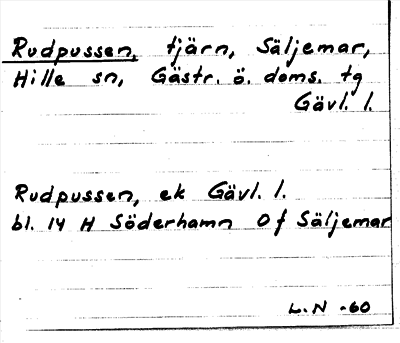 Rudpussen, tjärn, Säljemar,
Hille sn, Gästr. ö. doms. tg
Gävl. l.
Rudpussen, ek Gävl. l.
bl. 14 H Söderhamn 0 f Säljemar
L.N -60